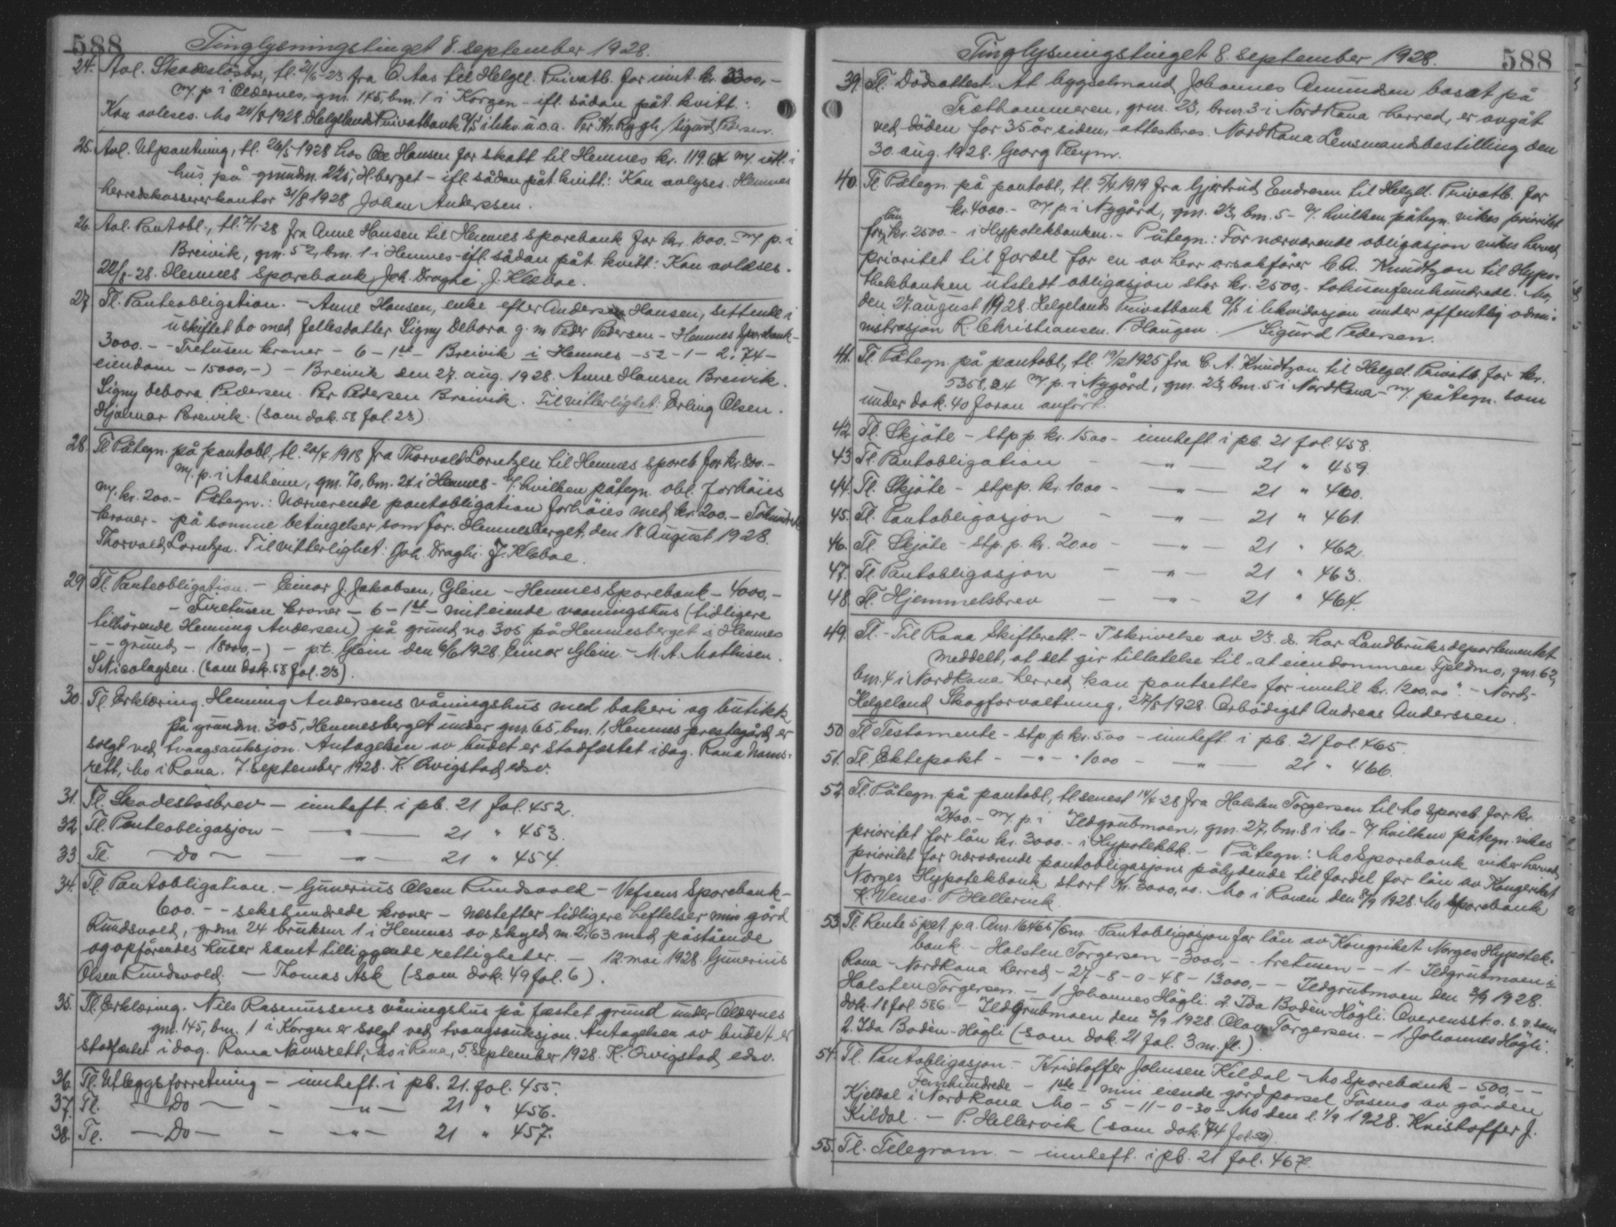 588
Tinglysningstinget 8. september 1928.
24. Avl. Skadesløsbr, tl. 21/6-23 fra O. Aas til Helgel. Privatb. for innt. kr. 3300,-
m/ p i Oldernes, gnr. 145, bnr. 1 i Korgen - ifl. sådan påt. kvitt:
Kan avleses. Mo 24/8 1928 Helgelands Privatbank A/S i likv. u.o.a. Sigurd Pedersen
25. Avl. Utpantning, tl. 26/5 1928 hos Ole Hansen for skatt til Hemnes kr. 119.64 m/ utl. i
hus på grundnr. 228, H.berget - ifl. sådan påt. kvitt: Kan avlyses. Hemnes
herredskassererkontor 31/8 1928 Johan Anderssen.
26. Avl. Pantobl., tl. 7/1-28 fra Anne Hansen til Hemnes Sparebank for kr. 1000.- m/ p. i
Breivik, gnr. 52, bnr. 1 i Hemnes - ifl. sådan påt. kvitt: Kan avleses.
22/8-28. Hemnes Sparebank, Joh. Draghi J. Klæboe.
27. Tl. Panteobligation. - Anne Hansen, enke efter Anders Hansen, sittende i
uskiftet bo med fellesdatter Signy Debora g. m Peder Pedersen - Hemnes Sparebank -
3000.- - Tretusen kroner - 6 - 1ste - Breivik i Hemnes - 52 - 1 - 2.74 -
eiendom - 15000,-) - Breivik den 27. aug. 1928. Anne Hansen Breivik.
Signy Debora Pedersen. Per Pedersen Breivik. Til vitterlighet: Erling Olsen.
Hjalmar Breivik. (som dok. 58 fol. 23).
28. Tl. Påtegn. på pantobl, tl. 20/4 1918 fra Thorvald Lorntzen til Hemnes spareb. for kr. 800.-
m/ p. i Aasheim, gnr. 70, bnr. 24 i Hemnes - if. hvilken påtegn. obl. forhøies
m/ kr. 200.- Påtegn.: Nærværende pantobligation forhøies med kr. 200.- Tohundrede
kroner - på samme betingelser som før. Hemnesberget, den 18. August 1928.
Thorvald Lorntzen. Til vitterlighet: Joh. Draghi J. Klæboe.
29. Tl. Panteobligation. - Einar J. Jakobsen, Glein - Hemnes Sparebank - 4000,-
- Firetusen kroner - 6 - 1ste - mit eiende vaaningshus (tidligere
tilhørende Henning Andersen) på grund no 305 på Hemnesberget i Hemnes
- - grund - 18000,-) - p.t. Glein den 6/6 1928 Einar Glein - M. A. Mathisen.
S. Nicolaysen. (som dok. 58 fol. 23).
30. Tl. Erklæring. Henning Andersens våningshus med bakeri og butikk
på grundnr. 305, Hemnesberget under gnr. 65, bnr. 1, Hemnes prestegård, er
solgt ved tvangsauksjon. Antagelsen av budet er stadfæstet idag. Rana Nams-
rett, Mo i Rana. 7. september 1928. K. Qvigstad, edsv.
31. Tl. Skadesløsbrev - innheft. i pb. 21 fol. 452.
32. Tl. Panteobligasjon - - " - 21 " 453.
33. Tl. - Do - - - " - 21 " 454.
34. Tl. Pantobligation. - Gunerius Olsen Rundsvold - Vefsens Sparebank -
600.- - sekshundrede kroner - næstefter tidligere heftelser min gård
Rundsvold, gårdnr. 24 bruksnr. 1 i Hemnes av skyld m. 2,63 med påstående
og opførendes huser samt tilliggende rettigheter. - 12. mai 1928. Gunerius
Olsen Rundsvold. - Thomas Ask (som dok. 49 fol. 6).
35. Tl. Erklæring. Nils Rasmussens våningshus på fæstet grund under Oldernes
gnr. 145, bnr. 1 i Korgen er solgt ved tvangsauksjon. Antagelsen av budet er
stadfæstet idag. Rana Namsrett, Mo i Rana, 5. september 1928. K. Qvigstad, edsv.
36. Tl. Utleggsforretning - innheft. i pb. 21. fol. 455.
37. Tl. - Do - - - " - 21 " 456.
38. Tl. - Do - - - " - 21 " 457.
Tinglysningstinget 8. september 1928.
588
39. Tl. Dødsattest. At bygselmand Johannes Amundsen bosat på
Træthammeren, gnr. 23, bnr. 3 i Nord Rana herred, er avgåt
ved døden for 35 år siden, attesteres. Nord Rana Lensmandsbestilling den
30. aug. 1928. Georg Pleym.
40. Tl. Påtegn. på pantobl, tl. 5/4 1919 fra Gjertrud Endresen til Helgel. Privatb. for
kr. 4000.- m/ p. i Nygård, gnr. 23, bnr. 5 - if. hvilken påtegn. vikes prioritet
for lån kr. 2500.- i Hypotekbanken. - Påtegn.: For nærværende obligasjon vikes herved
prioritet til fordel for en av herr orsakfører C. A. Knudtzon til Hypo-
thekbanken utstedt obligasjon stor kr. 2500,- totusenfemhundrede. Mo,
den 27. august 1928. Helgelands Privatbank A/S i likvidasjon under offentlig admi-
nistrasjon R. Christiansen. P. Langen. / Sigurd Pedersen.
41. Tl. Påtegn. på pantobl, tl. 19/12 1925 fra C. A. Knudtzon til Helgel. Privatb. for kr.
5358,24 m/ p. i Nygård, gnr. 23, bnr. 5 i Nord Rana - m/ påtegn. som
under dok. 40 foran anført.
42. Tl. Skjøte - stp. p. kr. 1500 - innheft i pb. 21 fol. 458.
43. Tl. Pantobligation - - " - 21 " 459.
44. Tl. Skjøte - stp. p. kr. 1000 - - " - 21 " 460.
45. Tl. Pantobligasjon - - " - 21 " 461.
46. Tl. Skjøte - stp. p. kr. 2000 - - " - 21 " 462.
47. Tl. Pantobligasjon - - " - 21 " 463.
48. Tl. Hjemmelsbrev - - " - 21 " 464.
49. Tl. - Til Rana Skifterett. - I skrivelse av 23. ds. har Landbruksdepartementet
meddelt, at det gir tillatelse til "at eiendommen Fjeldmo, gnr. 62,
bnr. 4 i Nord Rana herred kan pantsettes for inntil kr. 1200.00". - Nord-
Helgeland Skogforvaltning, 27/8 1928. Ærbødigst Andreas Anderssen.
50. Tl. Testamente - stp. p. kr. 500 - innheft. i pb. 21 fol. 465.
51. Tl. Ektepakt - - " - " 1000 - - " - 21 " 466.
52. Tl. Påtegn. på pantobl, tl. senest 14/4-28 fra Halsten Torgersen til Mo spareb. for kr.
2400.- m/ p. i Ildgrubmoen, gnr. 27, bnr. 8 i Mo - if. hvilken påtegn. vikes
prioritet for lån kr. 3000.- i Hypotekbk. - Påtegn.: Mo Sparebank viker herved
prioritet for nærværende pantobligasjons pålydende til fordel for lån av Kongeriket
Norges Hypotekbank stort kr. 3000,00. Mo i Ranen den 3/9 1928 Mo Sparebank
K. Venes. P. Hellervik.
53. Tl. Rente 5 pct. p.a. Anr. 16465/6nr. Pantobligasjon for lån av Kongriket Norges Hypotek-
bank. - Halsten Torgersen - 3000,- - tretusen - - 1 - Ildgrubmoen i
Rana - Nord Rana herred - 27 - 8 - 0 - 48 - 13000,- - Ildgrubmoen den 3/9 1928.
Halsten Torgersen. - 1 Johannes Høgli. 2. Ida Bodén-Høgli. Overensst. o. s. v. som
dok. 18 fol. 586 - Ildgrubmoen den 3/9 1928 Olav Torgersen. - 1. Johannes Høgli.
2. Ida Bodén-Høgli (som dok. 21 fol. 3 m. fl.).
54. Tl. Pantobligasjon - Kristoffer Johnsen Kildal - Mo Sparebank - 500,-
Femhundrede - 1ste - min eiende gård parsel Fosmo av gården
Kjeldal i Nord Rana Mo - 5 - 11 - 0 - 30 - Mo den 1/9 1928. Kristoffer J.
Kildal. - P. Hellervik (som dok. 74 fol. 50).
55. Tl. Telegram. - innheft. i pb. 21 fol. 467.